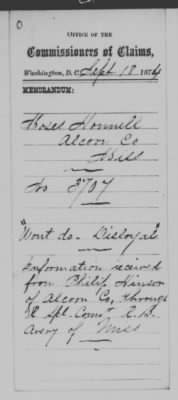 OFFICE OF THE
Commissioners of Claims,
Washington, D.C. Sept 18, 1874
MEMORANDUM:
Moses Honnell
Alcorn Co
Miss
No 3707
"Wont do - Disloyal"
Information received
from Philip Hinson
of Alcorn Co, through
Spl. Comr R. B.
Avery of Miss